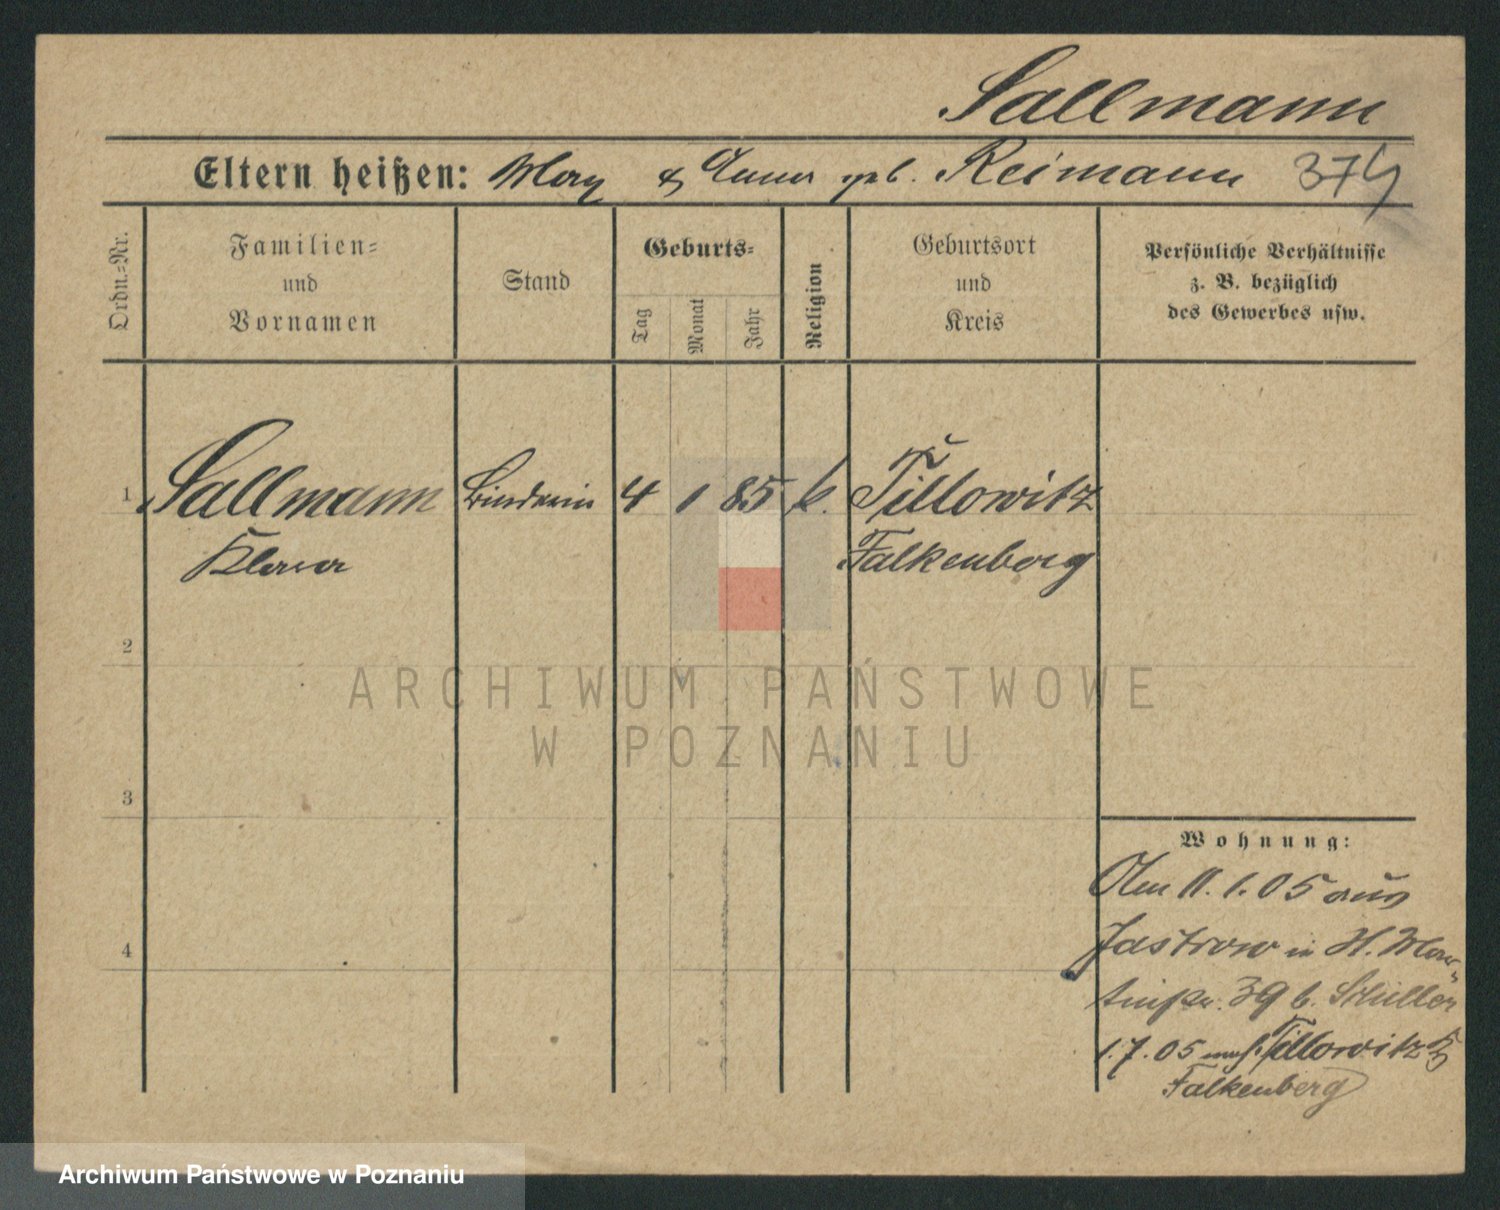 Sallmann
Eltern heißen: Max & Anna geb. Reimann 374
Ordn.=Nr.
Familien=
und
Vornamen
Stand
Geburts=
Tag
Monat
Jahr
Religion
Geburtsort
und
Kreis
Persönliche Verhältnisse
z. B. bezüglich
des Gewerbes usw.
1 Sallmann Binderin 4 1 85 k. Tillowitz
Klara Falkenberg
2
3
4
Wohnung:
Am 11.1.05 aus
Jastrow in H. Mar-
tinstr. 39 b. Schiller
1.7.05 nach Tillowitz
Falkenberg
ARCHIWUM PAŃSTWOWE
W POZNANIU
Archiwum Państwowe w Poznaniu